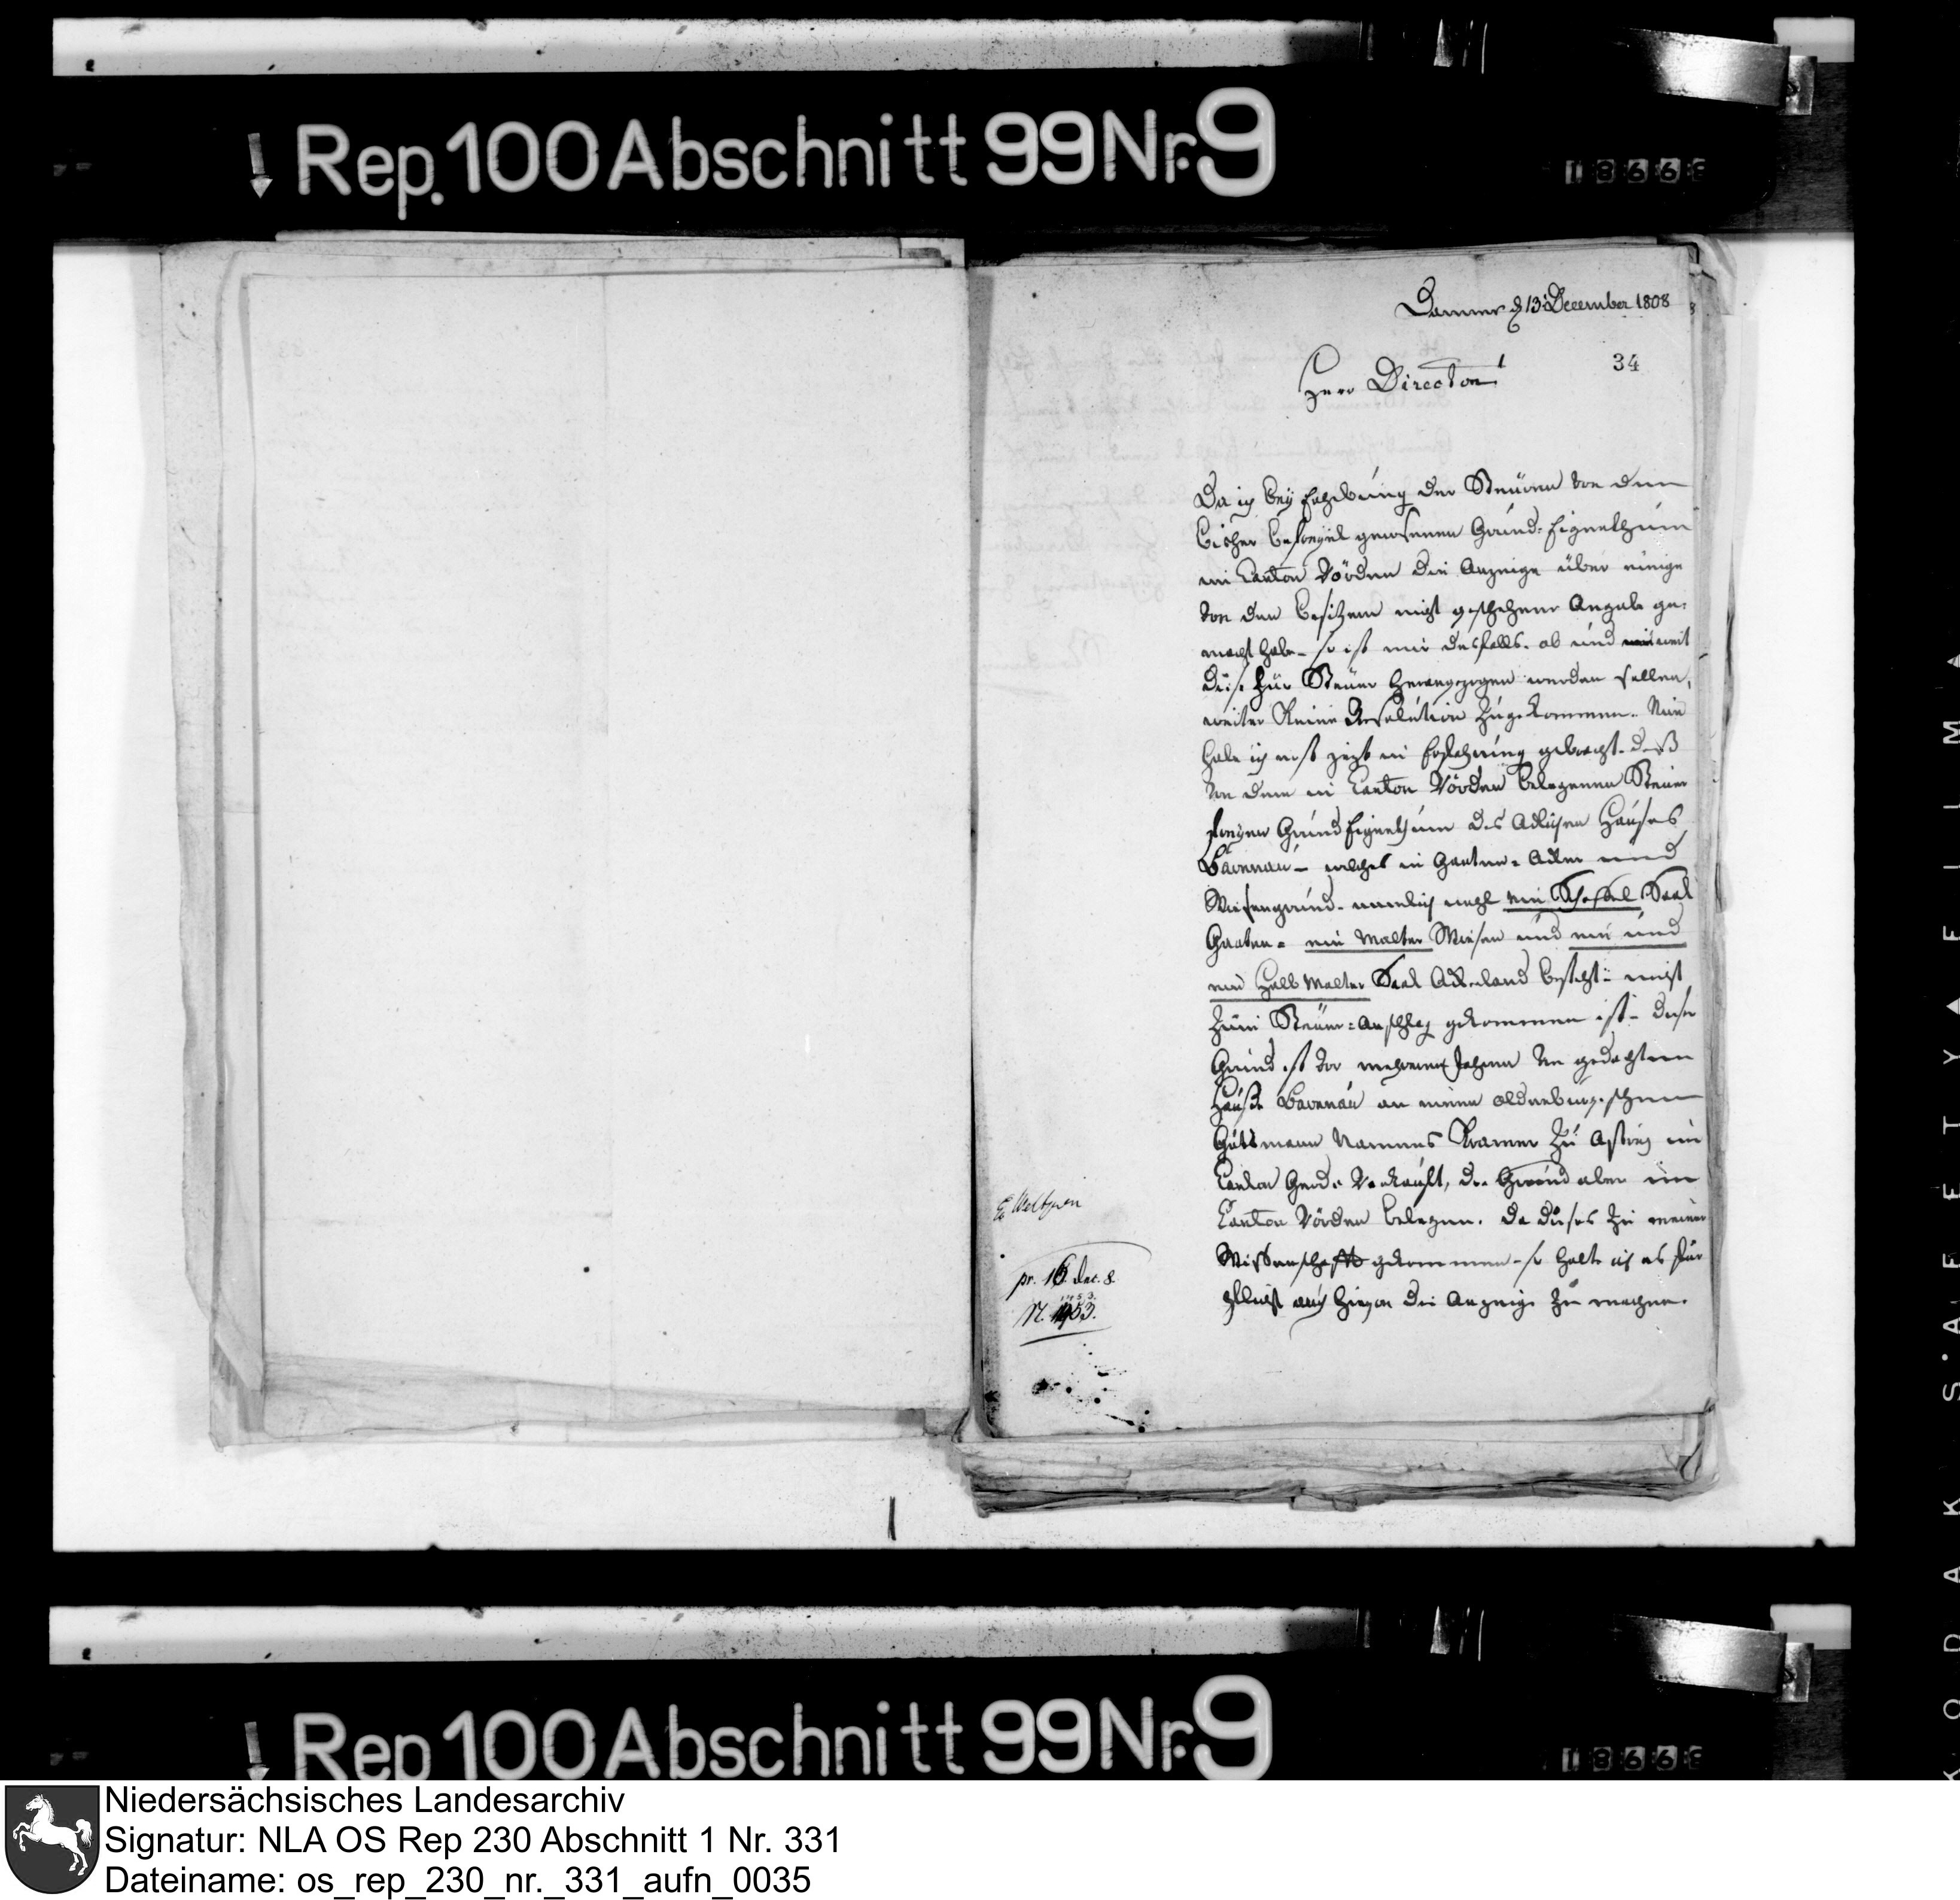 Rep. 100 Abschnitt 99 Nr. 9
18668
Damme d 13 December 1808
34
Herr Director!
Da ich bey Erhebung der Steuren von dem
bisher befreyet gewesenen Grund-Eigenthum
im Canton Vörden die Anzeige über einige
von den Besitzern nicht geschehene Angabe ge-
macht habe - so ist mir desfalls. ob und weit
diese zur Steuer herangezogen werden sollen,
weiter keine Resolution zugekommen. Nun
habe ich erst jezt in Erfahrung gebracht. daß
von dem in Canton Vörden belegenen Steuer
freyen Grund Eigenthum des Adlichen Hauses
- welches in Garten- Acker und
Wiesengrund. nemlich ein Scheffel Saat
Garten- ein Malter Wiesen und ein und
ein halb Malter Saat Ackerland besteht- nicht
zum Steuer-Anschlag gekommen ist - dieser
Grund ist vor mehreren Jahren von gedachtem
Hause an einen oldenburgischen
Namens Kramer zu im
Canton verkauft, der Grund aber im
Canton Vörden belegen. Da dieses zu meiner
Wissenschaft gekommen - so halte ich es für
Pflicht auch hievon die Anzeige zu machen.
pr. 16. dec. 8.
N. 1453.
Rep 100 Abschnitt 99 Nr. 9
18668
KODAK SAFETY FILM
Niedersächsisches Landesarchiv
Signatur: NLA OS Rep 230 Abschnitt 1 Nr. 331
Dateiname: os_rep_230_nr._331_aufn_0035